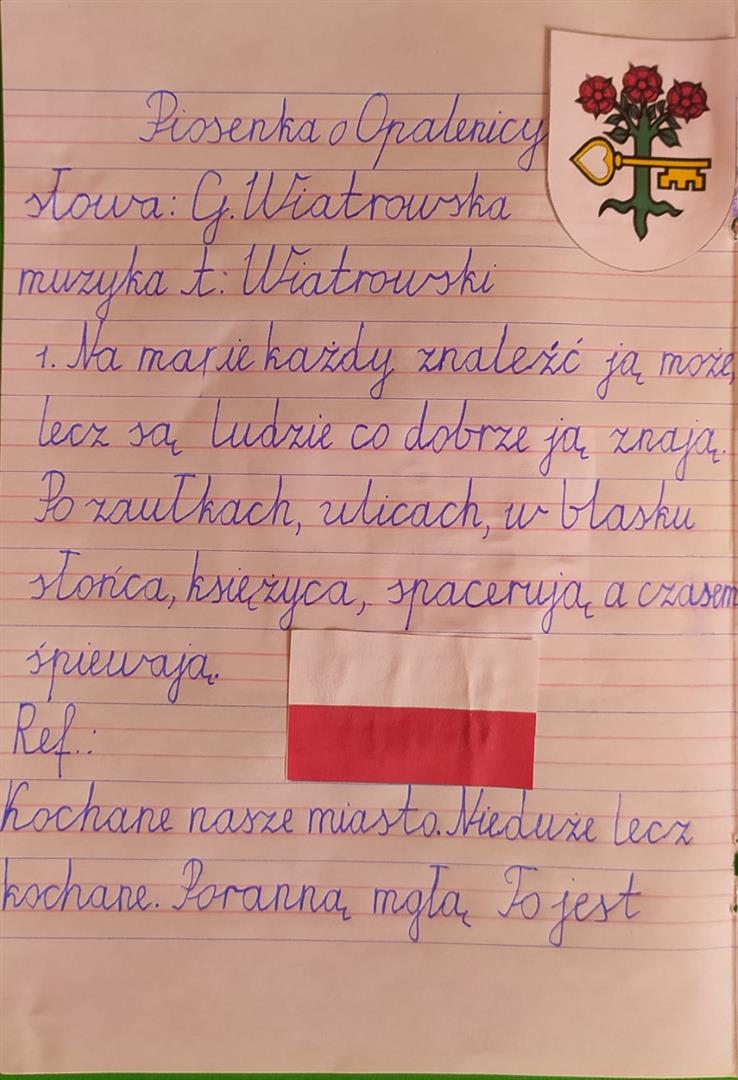 Piosenka o Opalenicy
słowa: G. Wiatrowska
muzyka t: Wiatrowski
1. Na mapie każdy znaleźć ją może,
lecz są ludzie co dobrze ją znają.
Po zaułkach, ulicach, w blasku
słońca, księżyca, spacerują a czasem
śpiewają.
Ref.:
Kochane nasze miasto. Nieduże lecz
kochane. Poranną mgłą To jest